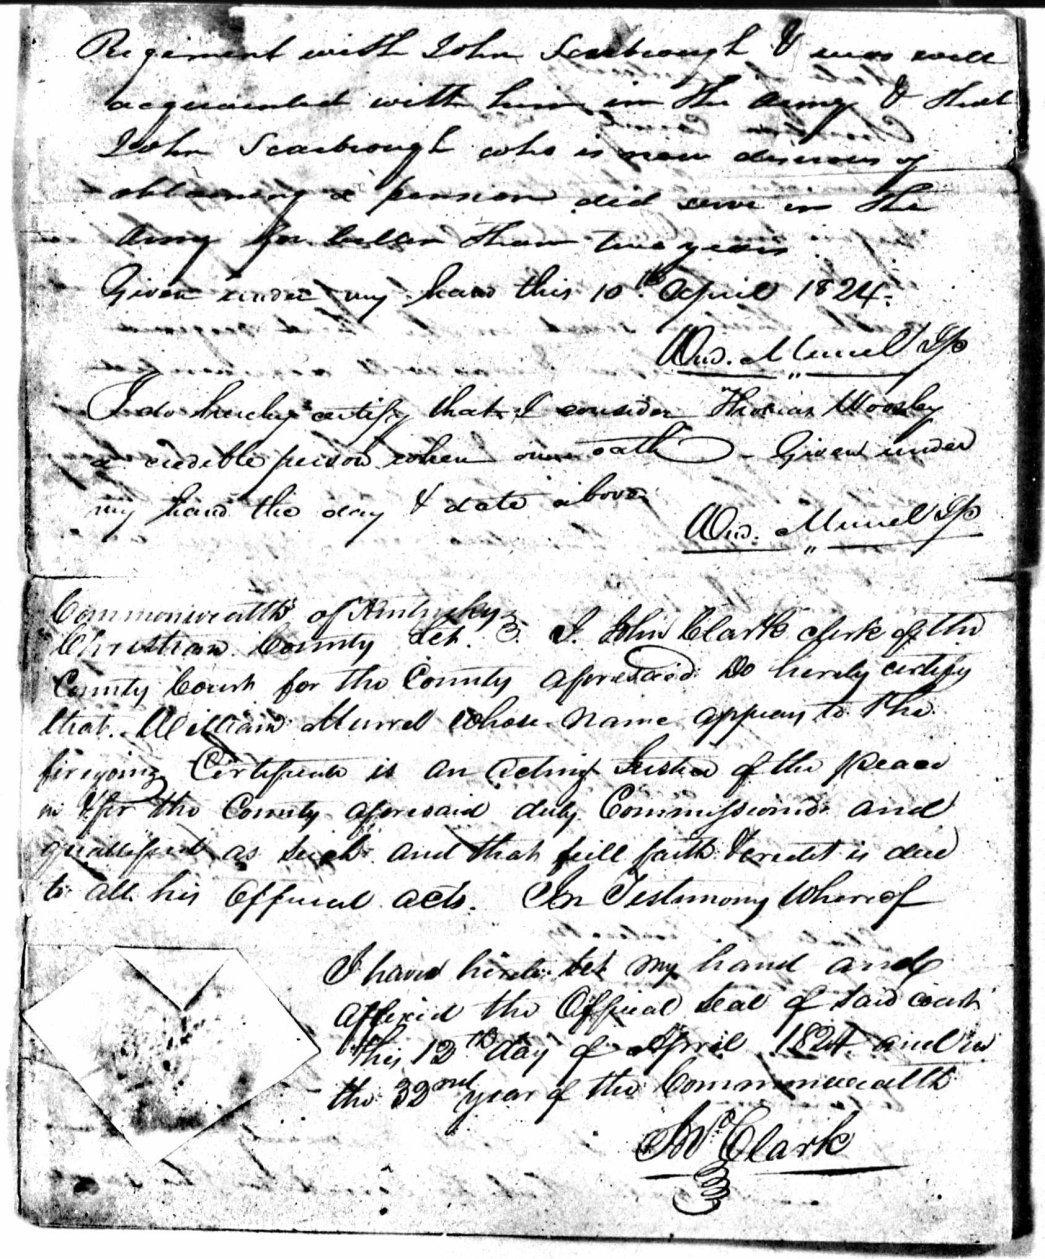 Regiment with John Scarbrough & was well
acquainted with him in the Army & that
John Scarbrough who is now desirous of
obtaining a pension did serve in the
Army for better than two years
Given under my hand this 10th April 1824.
Wm. Murrel JP
I do hereby certify that I consider Thomas Woosley
a credible person when on oath – Given under
my hand the day & date above
Wm. Murrel JP
Commonwealth of Kentucky
Christian County Sct. I John Clark clerk of the
County Court for the County aforesaid Do hereby certify
that William Murrel whose name appears to the
foregoing Certificate is an acting Justice of the peace
in & for the County aforesaid duly Commissioned and
qualified as such and that full faith & credit is due
to all his official acts. In Testimony Whereof
I have hereto set my hand and
affixed the Official seal of said court
this 12th day of April 1824 and in
the 32nd year of the Commonwealth
Jno Clark